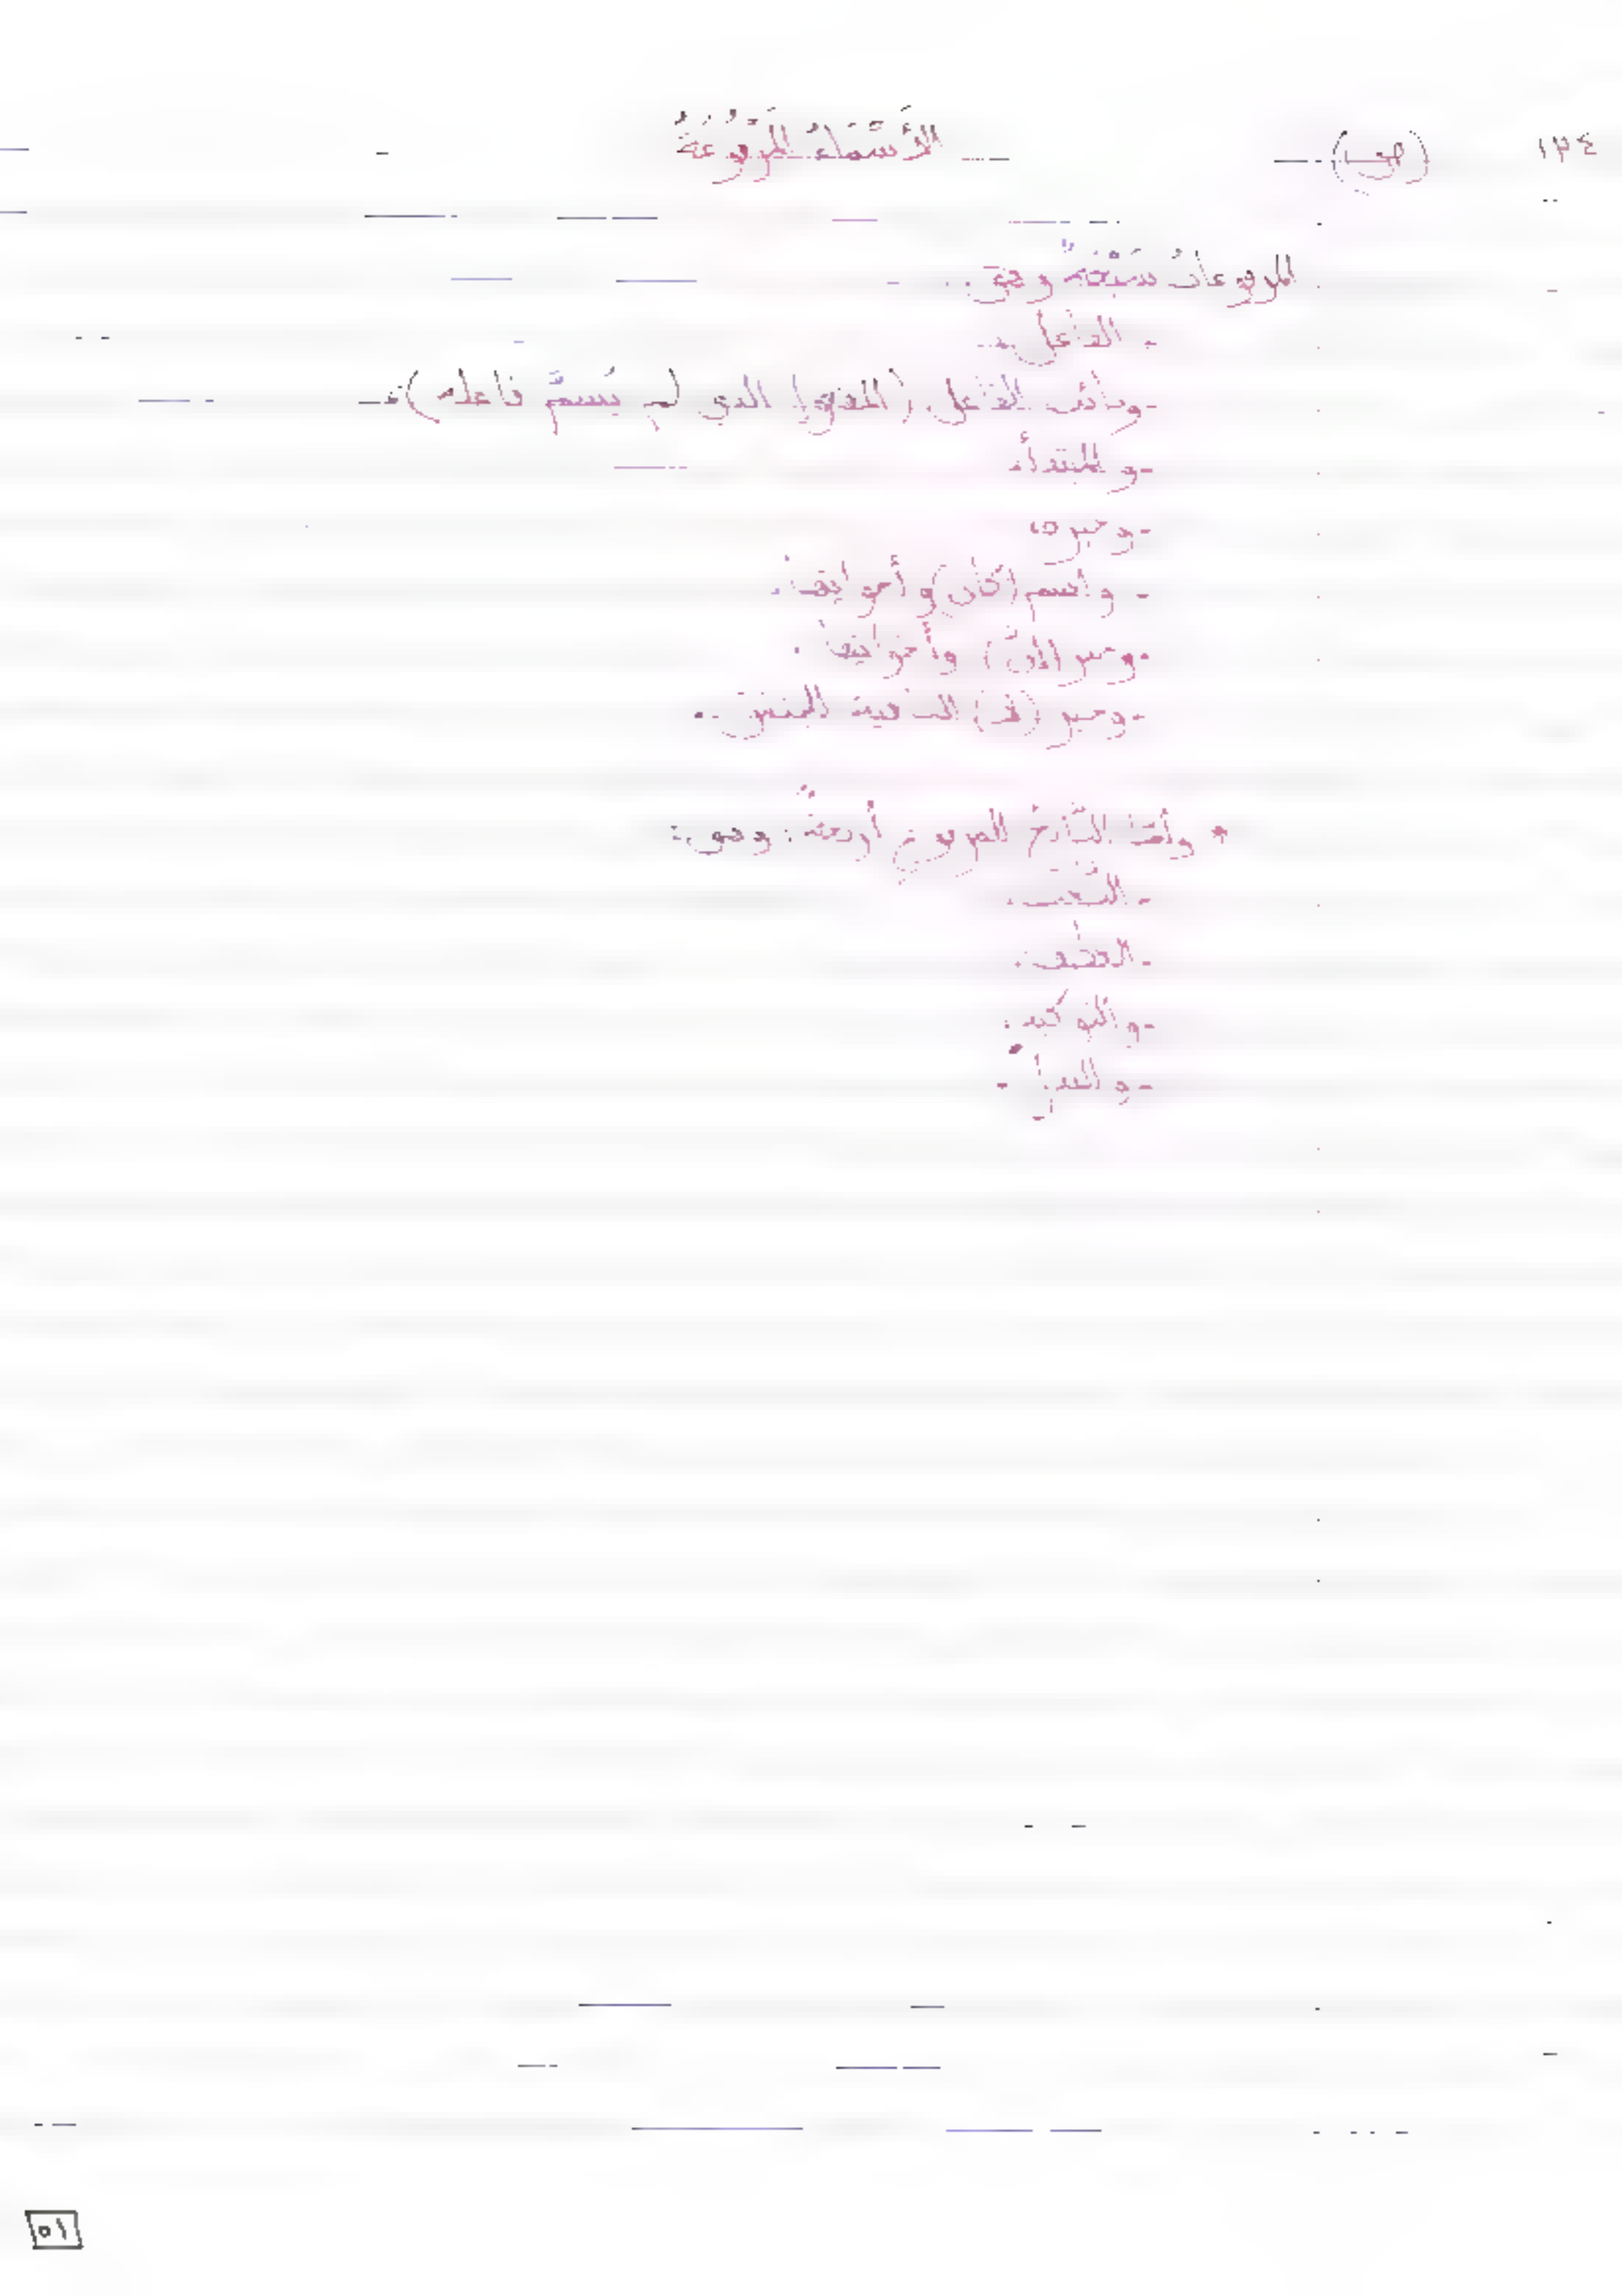 ١٣٤ (ص) الأَسْمَاءُ المَرْفُوعَةُ
المرفوعاتُ سَبْعَةٌ وهي:
- الفاعل.
- ونائب الفاعل (المفعول الذي لم يُسَمَّ فاعله).
- والمبتدأ.
- وخبره.
- واسم (كان) وأخواتها.
- وخبر (إنَّ) وأخواتها.
- وخبر (لا) النافية للجنس.
* وأمَّا التَّابعُ للمرفوع أربعةٌ: وهي:
- النَّعت.
- العطف.
- والتوكيد.
- والبدل.
٥١